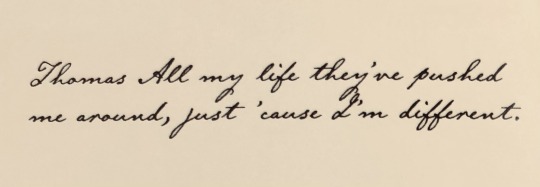 Thomas All my life they've pushed
me around, just 'cause I'm different.